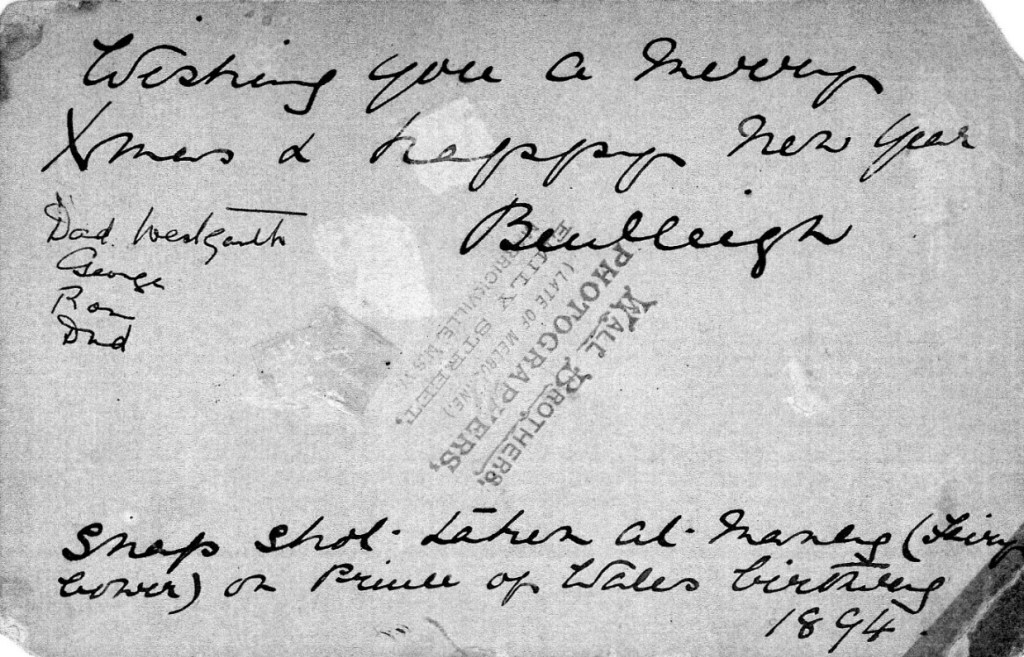 Wishing you a Merry
Xmas & happy New Year
Dad Westgarth
George
Ron
Dud
Beulleigh
WALL BROTHERS,
PHOTOGRAPHERS,
(LATE OF MELBOURNE,)
EMILY STREET,
MARRICKVILLE, N.S.W.
Snap shot taken at Manly (Fairy
bower) on Prince of Wales birthday
1894.